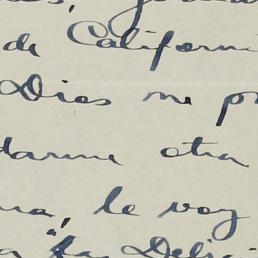 de Californi
Dios me p
darme otra
na, le voy
a "La Deli